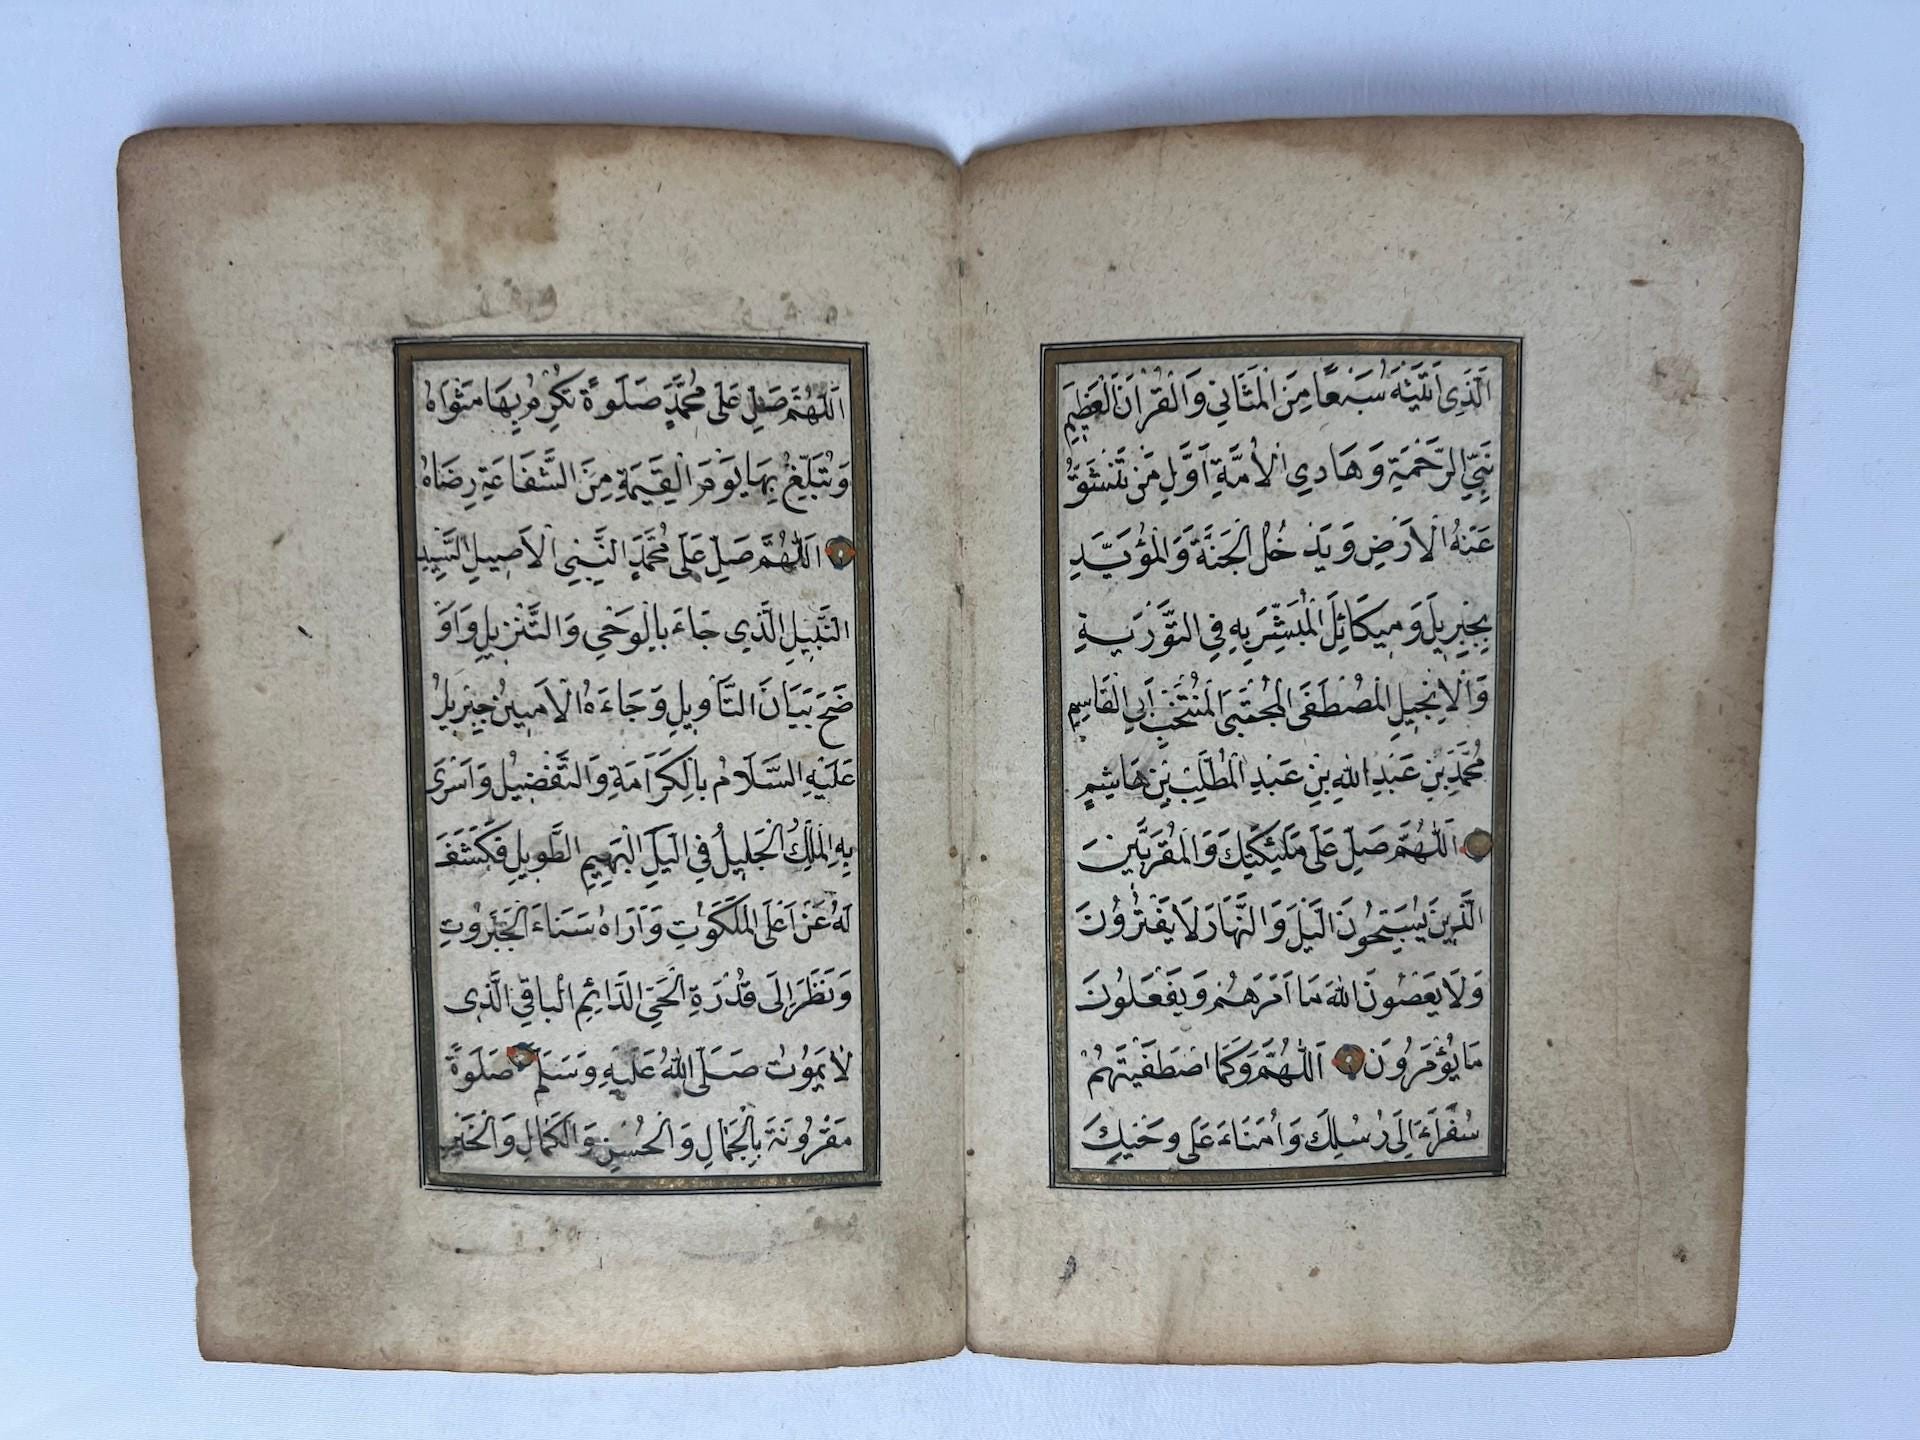 الَّذِى اٰتَيْتَهُ سَبْعًا مِنَ الْمَثَانِي وَالْقُرْاٰنَ الْعَظِيمَ
نَبِيِّ الرَّحْمَةِ وَهَادِي الْاُمَّةِ اَوَّلِ مَنْ تَنْشَقُّ
عَنْهُ الْاَرْضُ وَيَدْخُلُ الْجَنَّةَ وَالْمُؤَيَّدِ
بِجِبْرِيلَ وَمِيكَائِلَ الْمُبَشَّرِ بِهِ فِي التَّوْرٰيةِ
وَالْاِنْجِيلِ الْمُصْطَفَى الْمُجْتَبَى الْمُنْتَخَبِ اَبِي الْقَاسِمِ
مُحَمَّدِ بْنِ عَبْدِ اللهِ بْنِ عَبْدِ الْمُطَّلِبِ بْنِ هَاشِمٍ
اَللّٰهُمَّ صَلِّ عَلَى مَلٰئِكَتِكَ وَالْمُقَرَّبِينَ
الَّذِينَ يُسَبِّحُونَ الَّيْلَ وَالنَّهَارَ لَا يَفْتُرُونَ
وَلَا يَعْصُونَ اللهَ مَا اَمَرَهُمْ وَيَفْعَلُونَ
مَا يُؤْمَرُونَ اَللّٰهُمَّ وَكَمَا اصْطَفَيْتَهُمْ
سُفَرَاءَ اِلَى رُسُلِكَ وَاُمَنَاءَ عَلَى وَحْيِكَ
اَللّٰهُمَّ صَلِّ عَلَى مُحَمَّدٍ صَلٰوةً تُكْرِمُ بِهَا مَثْوَاهُ
وَتُبَلِّغُ بِهَا يَوْمَ الْقِيٰمَةِ مِنَ الشَّفَاعَةِ رِضَاهُ
اَللّٰهُمَّ صَلِّ عَلَى مُحَمَّدٍ النَّبِيِّ الْاَصِيلِ السَّيِّدِ
النَّبِيلِ الَّذِي جَاءَ بِالْوَحْيِ وَالتَّنْزِيلِ وَاَوْ
ضَحَ بَيَانَ التَّأْوِيلِ وَجَاءَهُ الْاَمِينُ جِبْرِيلُ
عَلَيْهِ السَّلَامُ بِالْكَرَامَةِ وَالتَّفْضِيلِ وَاَسْرَى
بِهِ الْمَلِكُ الْجَلِيلُ فِي الَّيْلِ الْبَهِيمِ الطَّوِيلِ فَكَشَفَ
لَهُ عَنْ اَعْلَى الْمَلَكُوتِ وَاَرَاهُ سَنَاءَ الْجَبَرُوتِ
وَنَظَرَ اِلَى قُدْرَةِ الْحَيِّ الدَّائِمِ الْبَاقِي الَّذِى
لَا يَمُوتُ صَلَّى اللهُ عَلَيْهِ وَسَلَّمَ صَلٰوةً
مَقْرُونَةً بِالْجَمَالِ وَالْحُسْنِ وَالْكَمَالِ وَالْخَيْرِ